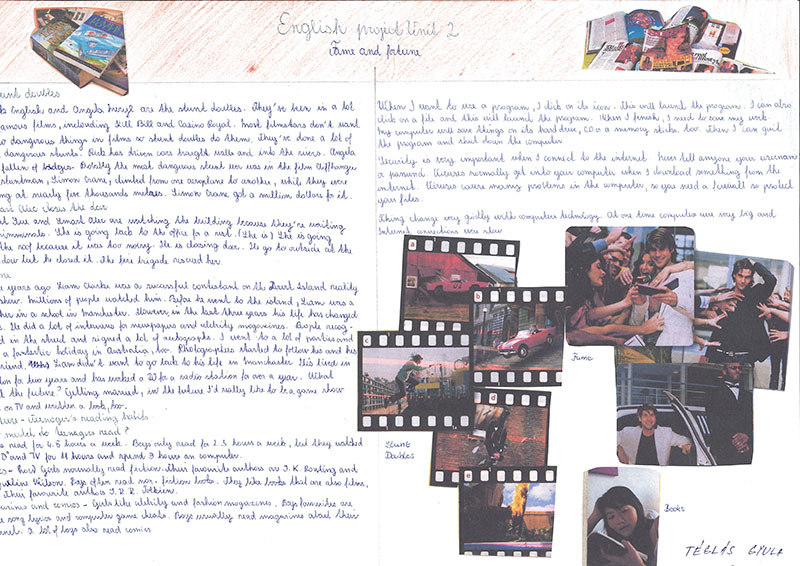 English project Unit 2
Fame and fortune
stunt doubles
English and Angela Meryl are the stunt doubles. They've been in a lot
famous films, inclouding Kill Bill and Casino Royal. Most filmstars don't want
do dangerous things in films so stunt doubles do them. They've done a lot of
dangerous stunts. Rick has driven cars traight walls and into the rivers. Angela
fallen of bridges. Posibly the most dangerous stunt ever was in the film Cliffhanger
stuntman, Simon Crane, climbed from one aeroplane to another, while they were
ing at nearly five thousands metres. Simon Crane got a million dollars for it.
Alec closes the door
Bec and Smart Alec are watching the building because they're waiting
criminals. She is going back to the office for a rest. (She is) She is going
the roof because it was too noisy. He is closing door. He go to outside at the
dow but he closed it. The fire brigade rescued her.
years ago Liam Clarke was a successful contestant on the Desert Island reality
show. Millions of people watched him. Before he went to the island, Liam was a
cher in a school in Manchester. However in the last three years his life has changed
He did a lot of interwies for newspapers and celebrity magazines. People recog-
d in the street and signed a lot of autographs. I went to a lot of parties and
a fantastic holiday in Australia, too. Photographers started to follow his and his
friend. Liam didn't want to go back to his life in Manchester. He's lived in
don for two years and has worked a DJ for a radio station for over a year. What
t the future? Getting married, in the future I'd really like to be a game show
on TV and written a book, too.
ture - teenager's reading habits
much do teenagers read?
s read for 4.5 hours a week. Boys only read for 2.3 hours a week, but they watched
D and TV for 11 hours and spend 9 hours on computer.
Girls normally read fiction. Their favourite authors are J.K. Rowling and
queline Wilson. Boys often read non-fiction books. They like books that are also films,
Their favourite authors J.R.R. Tolkien.
azines and comics - Girls like celebrity and fashion magazines. Boys favourites are
e song lyrics and computer game cheats. Boys usually read magazines about their
A lot of boys also read comics
When I want to use a program, I click on its icon. This will launch the program. I can also
click on a file and this will launch the program. When I finish, I need to save my work.
My computer will save things on its hard drive, CD or a memory sticks, too. Then I can quit
the program and shut down the computer
Security is very important when I connect to the internet. Never tell anyone your username
a password. Viruses normally get onto your computer when I download something from the
internet. Viruses cause moving problems in the computer, so you need a firewall to protect
your files.
Thing change very quickly with computers technology. At one time computer were very big and
Internet connections was slow
a
b
c
d
e
Stunt
Doubles
Fame
Books
TÉGLÁS GYULA